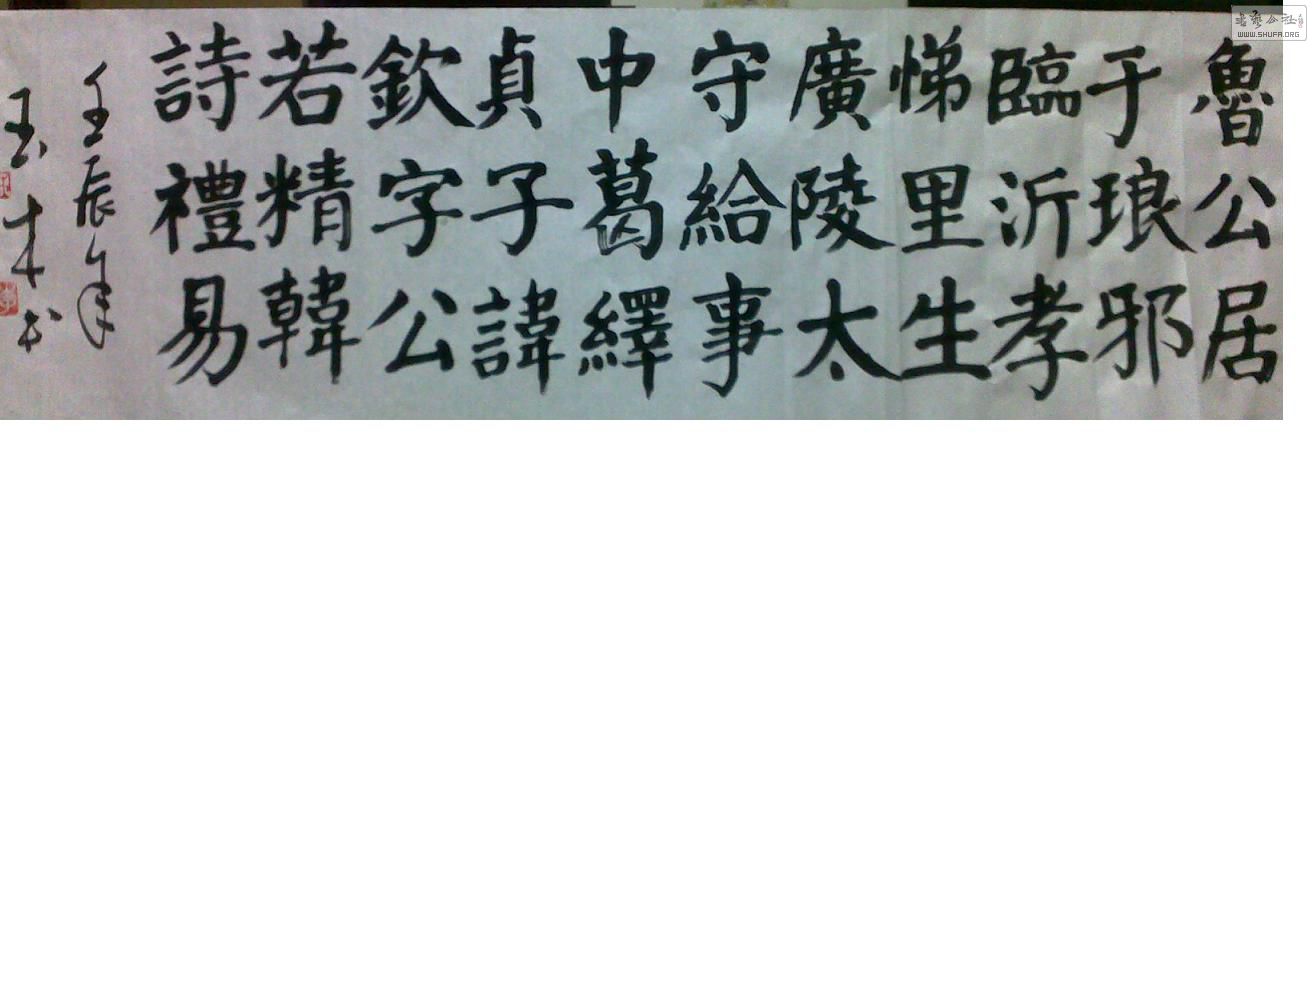 魯公居
于琅邪
臨沂孝
悌里生
廣陵太
守給事
中葛繹
貞子諱
欽字公
若精韓
詩禮易
壬辰年
玉才书
书艺公社
WWW.SHUFA.ORG